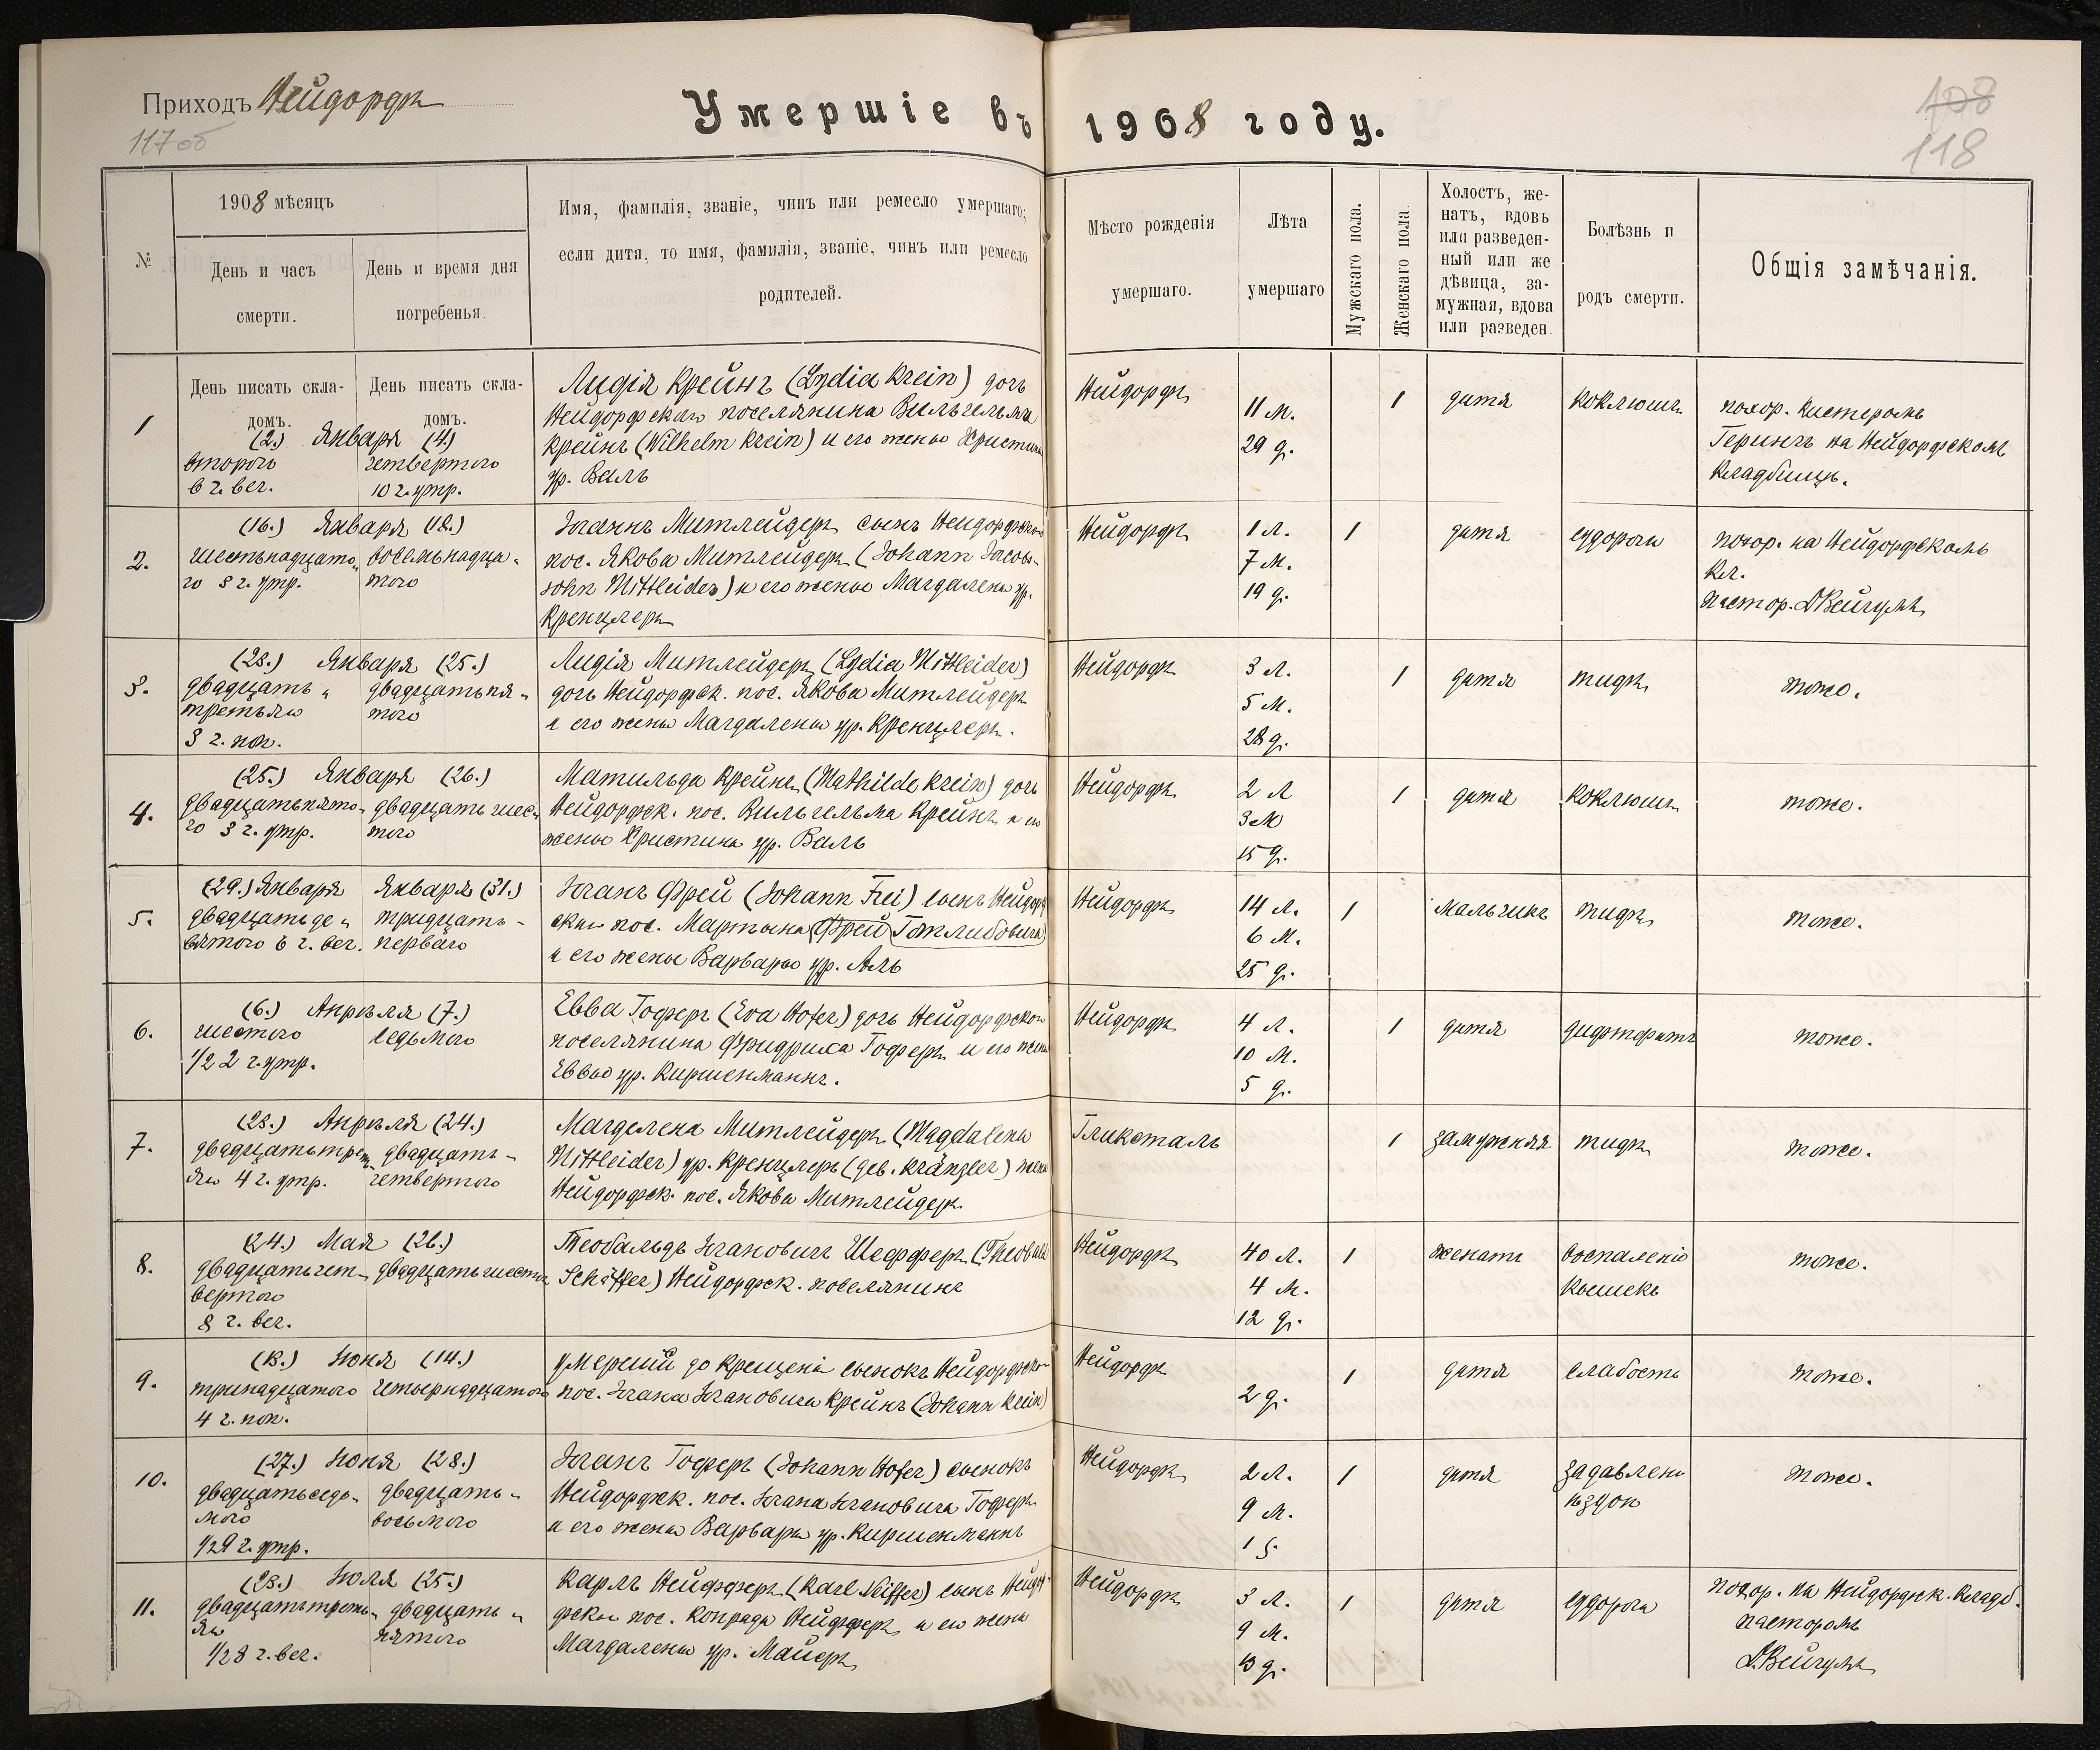 Приходъ Нейдорфъ
117об
Умершіе въ 1908 году.
108
118
№
1908 мѣсяцъ
День и часъ
смерти.
День и время дня
погребенья.
Имя, фамилія, званіе, чинъ или ремесло умершаго;
если дитя, то имя, фамилія, званіе, чинъ или ремесло
родителей.
Мѣсто рожденія
умершаго.
Лѣта
умершаго
Мужскаго пола.
Женскаго пола
Холостъ, же-
натъ, вдовъ
или разведен-
ный или же
дѣвица, за-
мужная, вдова
или разведен.
Болѣзнь и
родъ смерти.
Общія замѣчанія.
1
День писать скла-
домъ.
День писать скла-
домъ.
(2.) Января (4.)
второго
6 ч. веч.
четвертого
10 ч. утр.
Лидія Крейнъ (Lydia Krein) дочь
Нейдорфскаго поселянина Вильгельма
Крейнъ (Wilhelm Krein) и его жены Христины
ур. Валь
Нейдорфъ
11 м.
29 д.
1
дитя
коклюшъ
похор. кистеромъ
Герингъ на Нейдорфскомъ
кладбищѣ.
2.
(16.) Января (18.)
шестьнадцато-
го 8 ч. утр.
восемьнадца-
того
Іоганнъ Митлейдеръ сынъ Нейдорфскаго
пос. Якова Митлейдеръ (Johann Jacobs-
sohn Mittleider) и его жены Магдалены ур.
Кренцлеръ
Нейдорфъ
1 л.
7 м.
19 д.
1
дитя
судороги
похор. на Нейдорфскомъ
кл.
пастор. Д. Вейгумъ
3.
(23.) Января (25.)
двадцать-
третьяго
3 ч. поп.
двадцатьпя-
того
Лидія Митлейдеръ (Lydia Mittleider)
дочь Нейдорфск. пос. Якова Митлейдеръ
и его жены Магдалены ур. Кренцлеръ.
Нейдорфъ
3 л.
5 м.
28 д.
1
дитя
тифъ
тоже.
4.
(25.) Января (26.)
двадцатьпято-
го 3 ч. утр.
двадцать шес-
того
Матильда Крейнъ (Mathilde Krein) дочь
Нейдорфск. пос. Вильгельма Крейнъ и его
жены Христины ур. Валь
Нейдорфъ
2 л
3 м
15 д.
1
дитя
коклюшъ
тоже.
5.
(29.) Января
двадцатьде-
вятого 6 ч. веч.
Января (31.)
тридцать-
перваго
Іоганъ Фрей (Johann Frei) сынъ Нейдорф-
скаго пос. Мартына (Фрей Готлибовича)
и его жены Варвары ур. Аль
Нейдорфъ
14 л.
6 м.
25 д.
1
мальчикъ
тифъ
тоже.
6.
(6.) Апрѣля (7.)
шестого
1/2 2 ч. утр.
седьмого
Евва Гоферъ (Eva Hofer) дочь Нейдорфскаго
поселянина Фридриха Гоферъ и его жены
Еввы ур. Киршенманнъ.
Нейдорфъ
4 л.
10 м.
5 д.
1
дитя
дифтеритъ
тоже.
7.
(23.) Апрѣля (24.)
двадцатьтреть-
яго 4 ч. утр.
двадцать-
четвертого
Магдалена Митлейдеръ (Magdalena
Mittleider) ур. Кренцлеръ (geb. Kränzler) жена
Нейдорфск. пос. Якова Митлейдеръ
Глюкстать
1
замужняя
тифъ
тоже.
8.
(24.) Мая (26.)
двадцатьчет-
вертого
8 ч. веч.
двадцатьшестого
Теобальдъ Іогановичъ Шефферъ (Theobald
Schäffer) Нейдорфск. поселянинъ
Нейдорфъ
40 л.
4 м.
12 д.
1
женатъ
воспаленіе
кишекъ
тоже.
9.
(13.) Іюня (14.)
тринадцатого
4 ч. поп.
четырнадцатого
умершій до крещенія сынокъ Нейдорфск.
пос. Іогана Іогановича Крейнъ (Johann Krein)
Нейдорфъ
2 д.
1
дитя
слабость
тоже.
10.
(27.) Іюня (28.)
двадцатьседь-
мого
1/2 9 ч. утр.
двадцать-
восьмого
Іоганъ Гоферъ (Johann Hofer) сынокъ
Нейдорфск. пос. Іогана Іогановича Гоферъ
и его жены Варвары ур. Киршенманнъ
Нейдорфъ
2 л.
9 м.
1
дитя
задавленъ
тоже.
11.
(23.) Іюля (25.)
двадцатьтреть-
яго
1/2 8 ч. веч.
двадцать-
пятого
Карлъ Нейфферъ (Karl Neiffer) сынъ Нейдор-
фскаго пос. Конрада Нейфферъ и его жены
Магдалены ур. Майеръ
Нейдорфъ
3 л.
9 м.
13 д.
1
дитя
судороги
похор. на Нейдорфск. кладб.
пасторомъ
Д. Вейгумъ